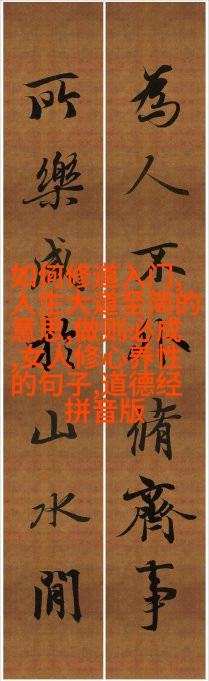 為人不脩齊事
所樂山水間
如何修道入门,
人生大道至简的
意思,做则必成
,女人修心养性
的句子,道德经
拼音版